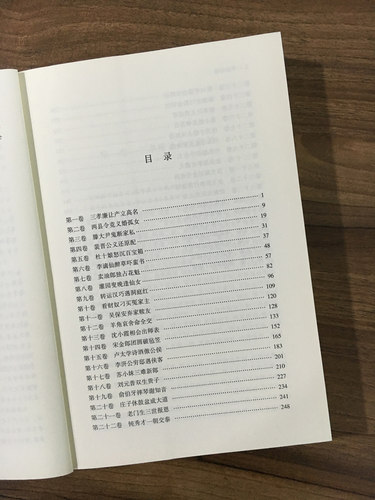 目录
第一卷 三孝廉让产立高名 1
第二卷 两县令竞义婚孤女 9
第三卷 滕大尹鬼断家私 19
第四卷 裴晋公义还原配 31
第五卷 杜十娘怒沉百宝箱 37
第六卷 李谪仙醉草吓蛮书 48
第七卷 卖油郎独占花魁 57
第八卷 灌园叟晚逢仙女 82
第九卷 转运汉巧遇洞庭红 96
第十卷 看财奴刁买冤家主 109
第十一卷 吴保安弃家赎友 120
第十二卷 羊角哀舍命全交 128
第十三卷 沈小霞相会出师表 133
第十四卷 宋金郎团圆破毡笠 152
第十五卷 卢太学诗酒傲公侯 165
第十六卷 李汧公穷邸遇侠客 183
第十七卷 苏小妹三难新郎 201
第十八卷 刘元普双生贵子 210
第十九卷 俞伯牙摔琴谢知音 227
第二十卷 庄子休鼓盆成大道 234
第二十一卷 老门生三世报恩 241
第二十二卷 钝秀才一朝交泰 248